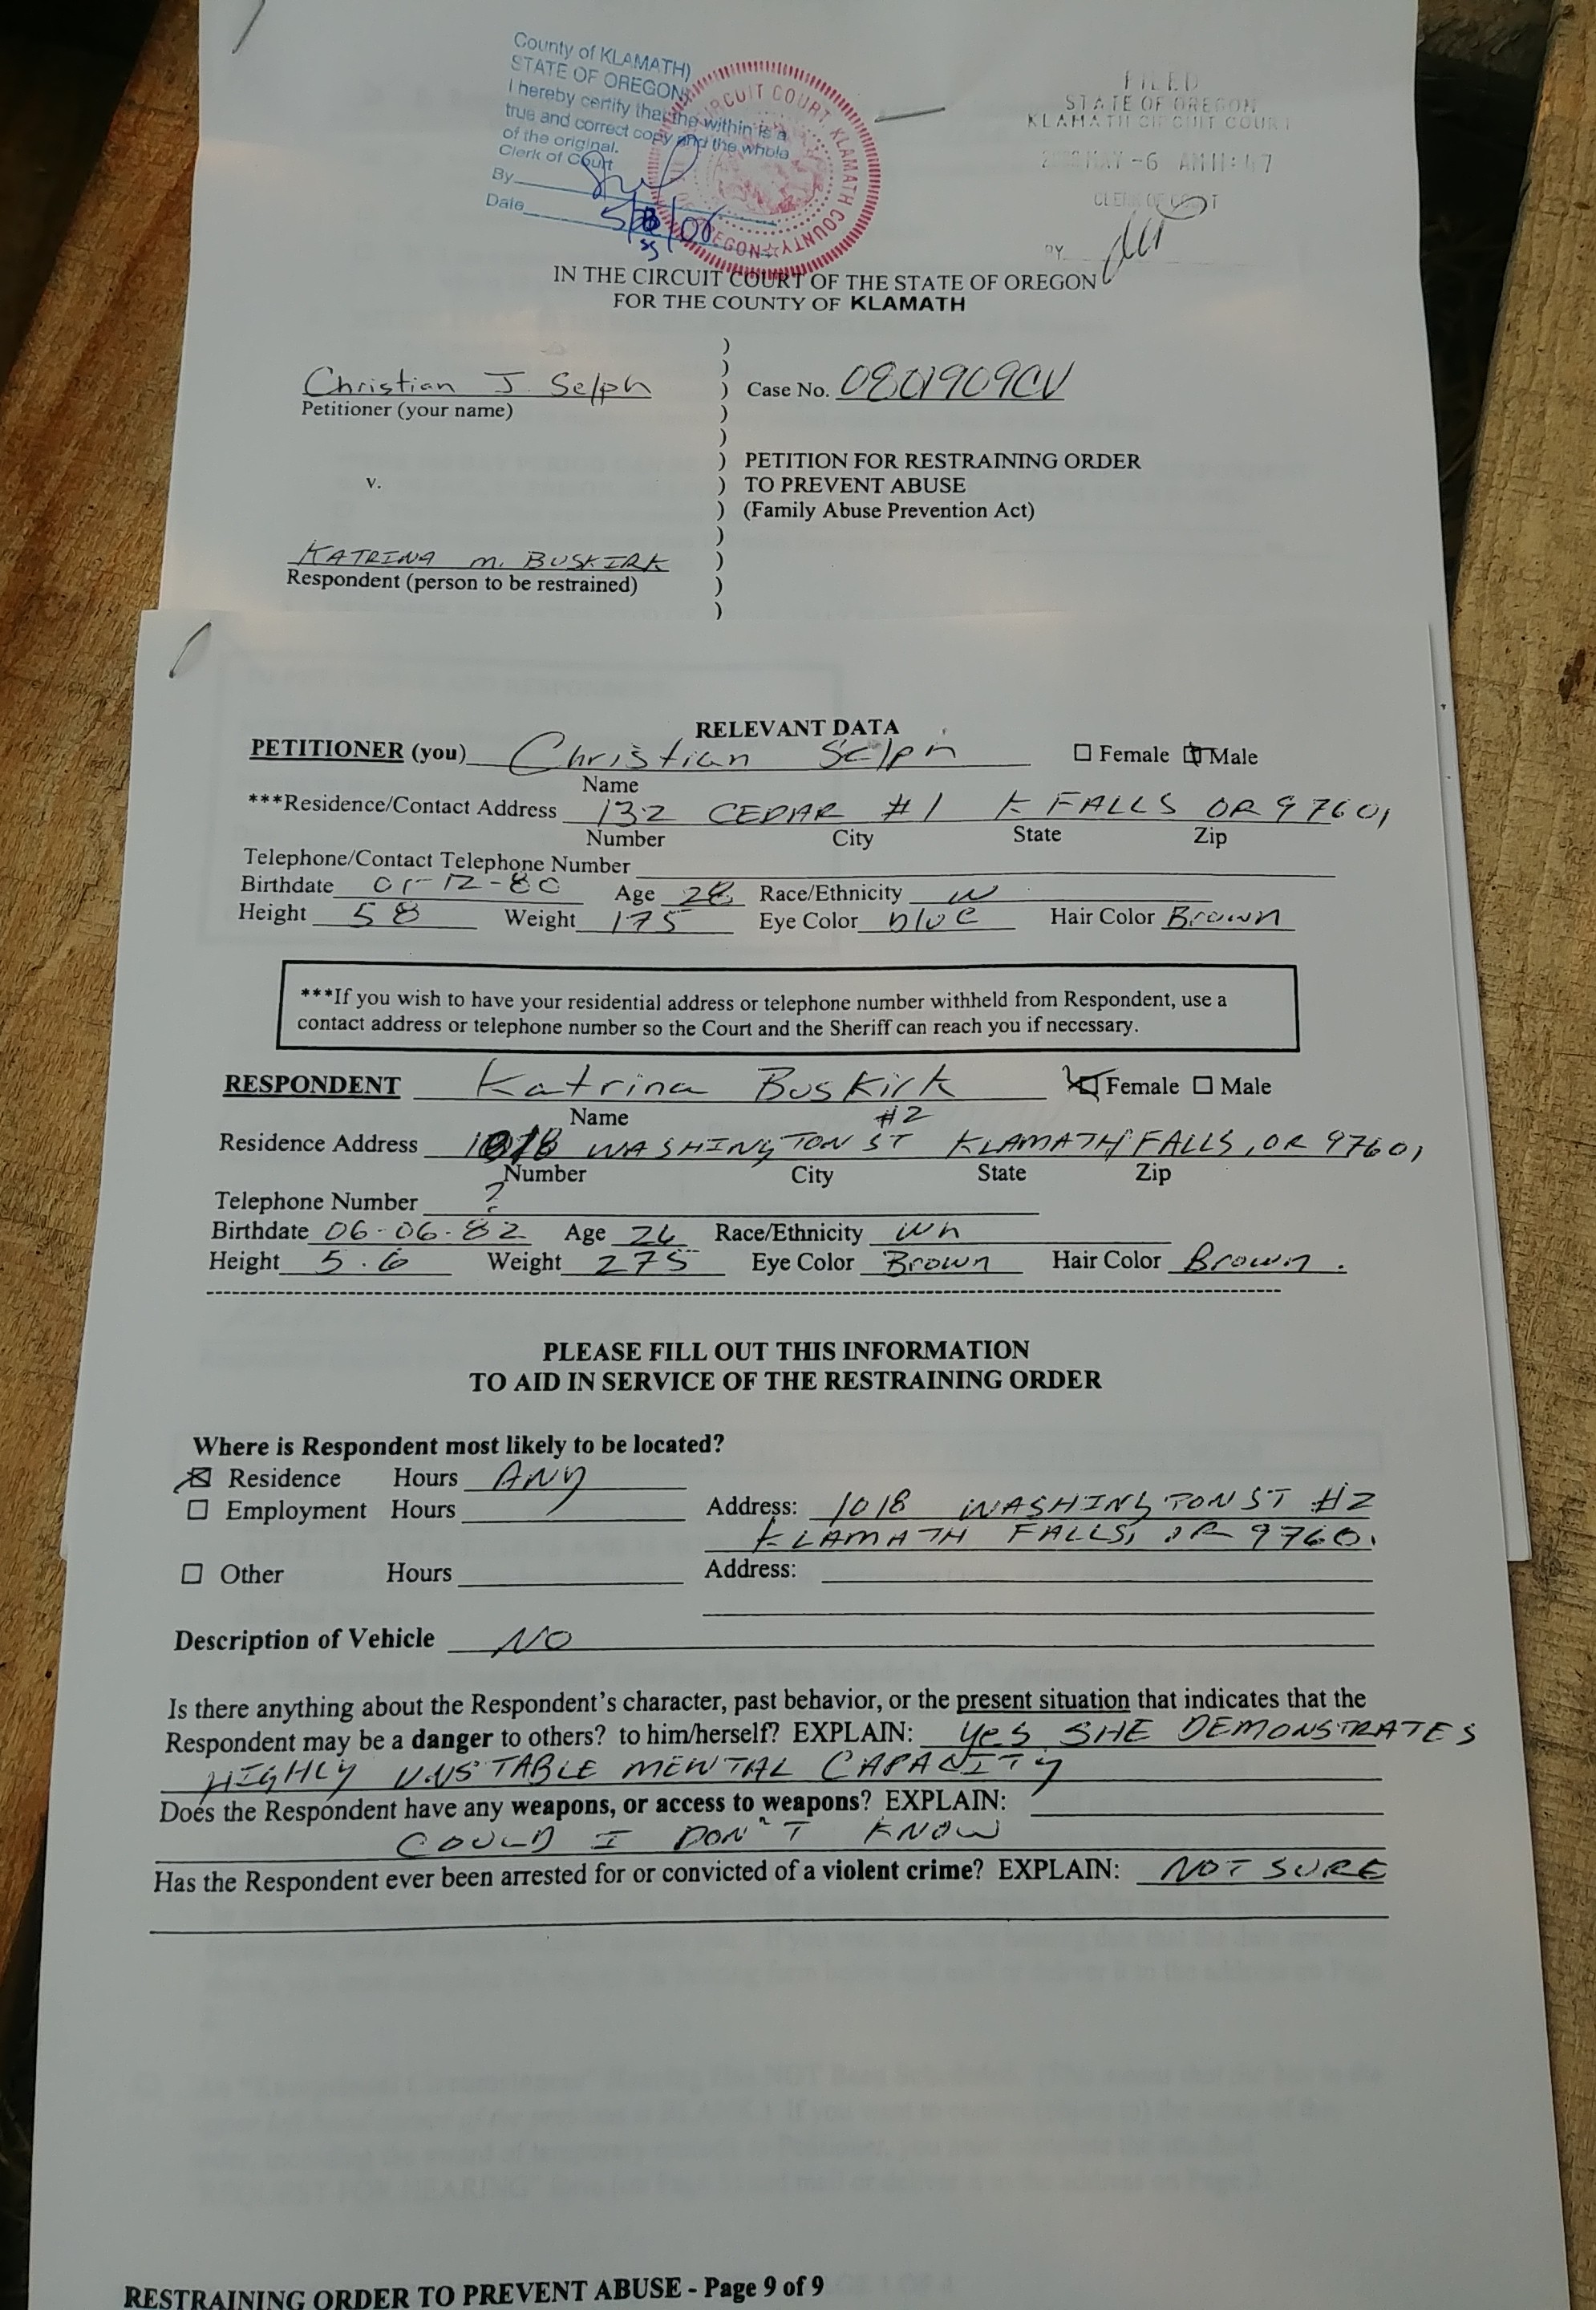 County of KLAMATH)
STATE OF OREGON)
I hereby certify that the within is a
true and correct copy and the whole
of the original.
Clerk of Court
By
Date
CIRCUIT COURT KLAMATH COUNTY OREGON
FILED
STATE OF OREGON
KLAMATH CIRCUIT COURT
MAY -6 AM 11:
CLERK OF COURT
BY
IN THE CIRCUIT COURT OF THE STATE OF OREGON
FOR THE COUNTY OF KLAMATH
Christian J. Selph
Petitioner (your name)
v.
KATRINA M. BUSKIRK
Respondent (person to be restrained)
Case No. 0801909CV
PETITION FOR RESTRAINING ORDER
TO PREVENT ABUSE
(Family Abuse Prevention Act)
RELEVANT DATA
PETITIONER (you) Christian Selph ☐ Female ☒ Male
Name
***Residence/Contact Address 132 CEDAR #1 K FALLS OR 97601
Number City State Zip
Telephone/Contact Telephone Number
Birthdate 01-12-80 Age 28 Race/Ethnicity W
Height 58 Weight 175 Eye Color blue Hair Color Brown
***If you wish to have your residential address or telephone number withheld from Respondent, use a
contact address or telephone number so the Court and the Sheriff can reach you if necessary.
RESPONDENT Katrina Buskirk ☒ Female ☐ Male
Name #2
Residence Address 1018 WASHINGTON ST KLAMATH FALLS, OR 97601
Number City State Zip
Telephone Number ?
Birthdate 06-06-82 Age 26 Race/Ethnicity Wh
Height 5.6 Weight 275 Eye Color Brown Hair Color Brown.
PLEASE FILL OUT THIS INFORMATION
TO AID IN SERVICE OF THE RESTRAINING ORDER
Where is Respondent most likely to be located?
☒ Residence Hours ANY
☐ Employment Hours Address: 1018 WASHINGTON ST #2
KLAMATH FALLS, OR 97601
☐ Other Hours Address:
Description of Vehicle NO
Is there anything about the Respondent's character, past behavior, or the present situation that indicates that the
Respondent may be a danger to others? to him/herself? EXPLAIN: yes SHE DEMONSTRATES
HIGHLY UNSTABLE MENTAL CAPACITY
Does the Respondent have any weapons, or access to weapons? EXPLAIN:
COULD I DON'T KNOW
Has the Respondent ever been arrested for or convicted of a violent crime? EXPLAIN: NOT SURE
RESTRAINING ORDER TO PREVENT ABUSE - Page 9 of 9